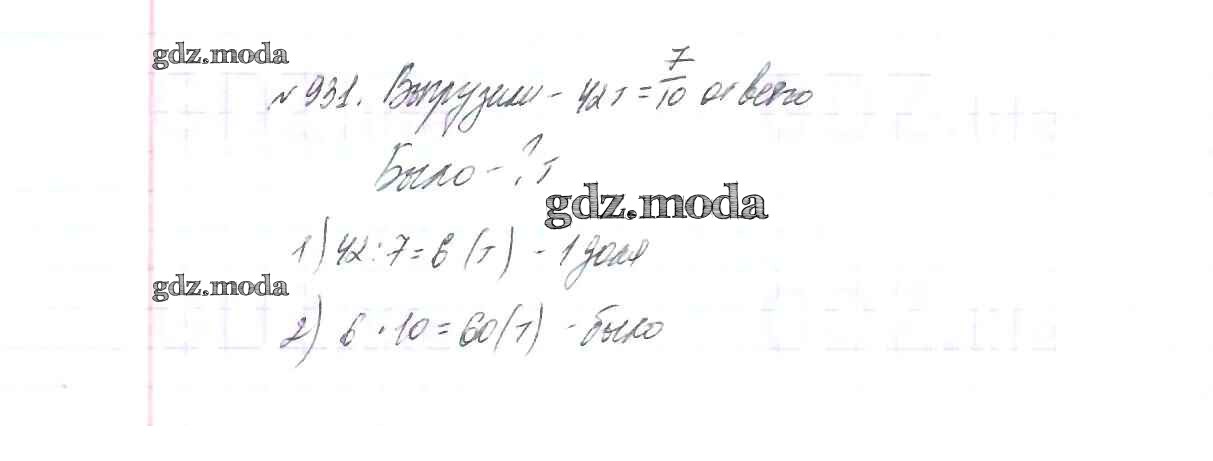 gdz.moda
№931. Выгрузили - 42т = 7/10 от всего
Было - ? т
gdz.moda
1) 42 : 7 = 6 (т) - 1 доля
gdz.moda
2) 6 · 10 = 60 (т) - было